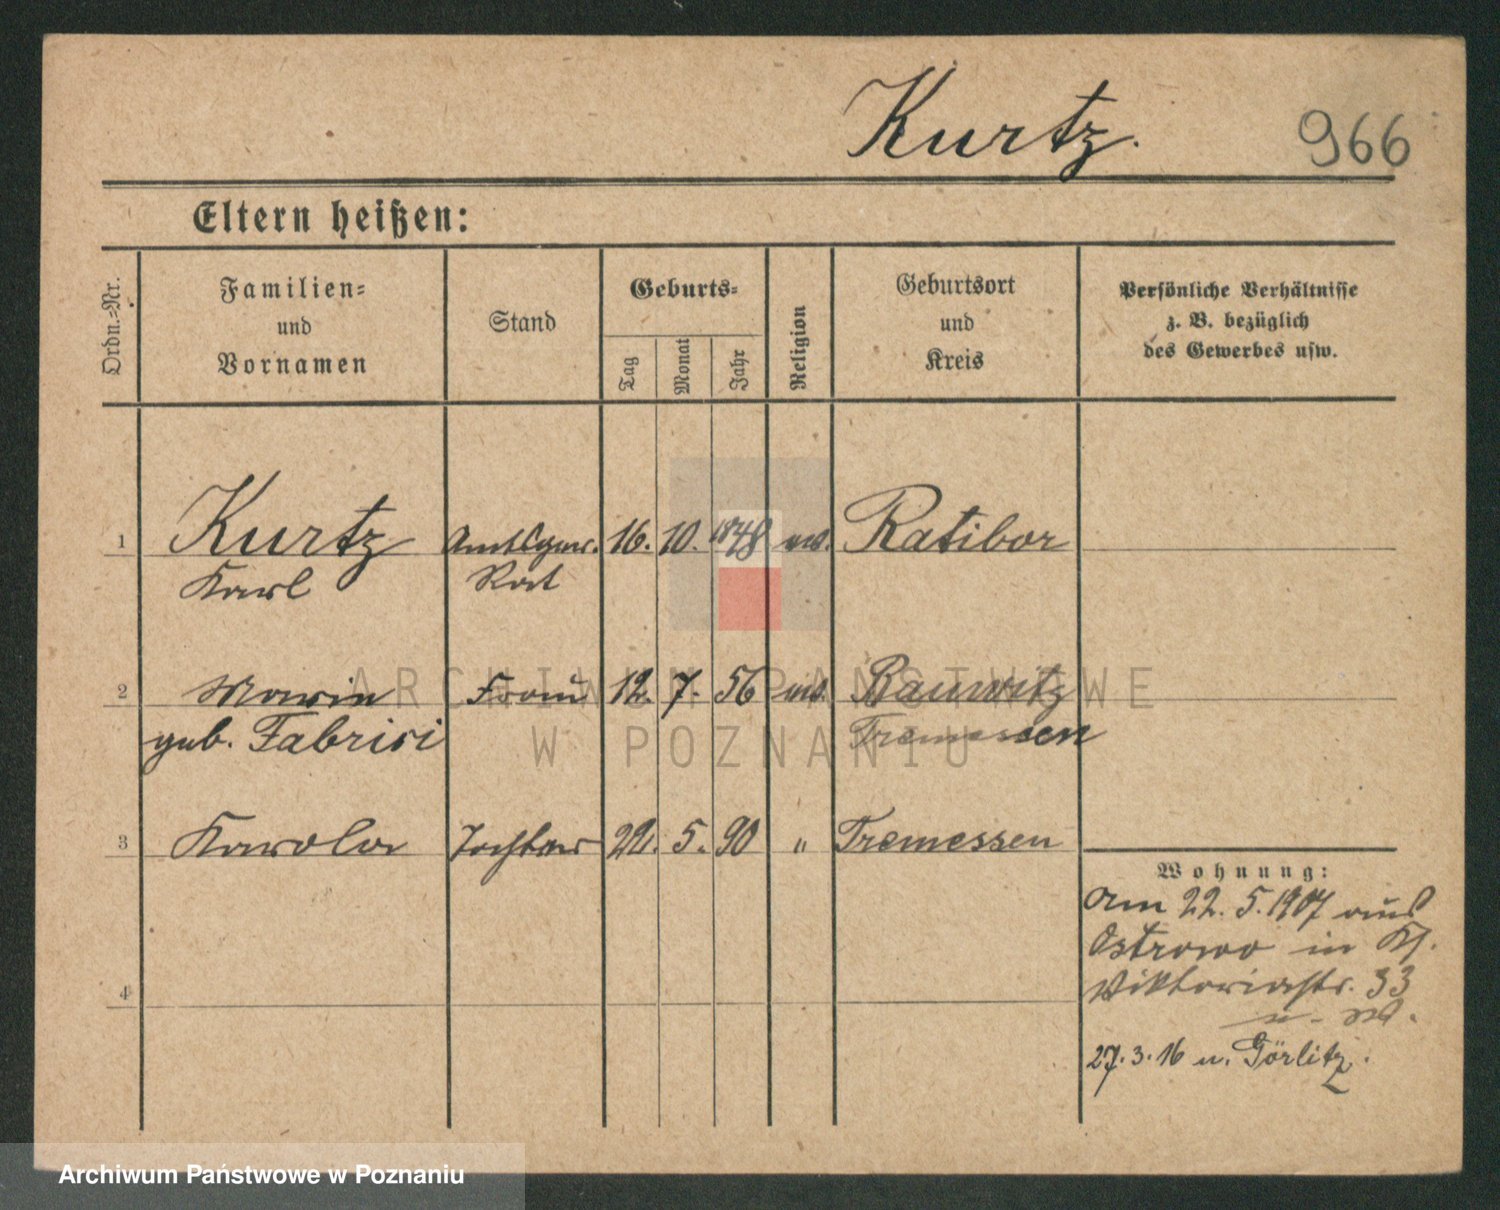 Kurtz.
966
Eltern heißen:
Ordn.=Nr.
Familien=
und
Vornamen
Stand
Geburts=
Tag
Monat
Jahr
Religion
Geburtsort
und
Kreis
Persönliche Verhältnisse
z. B. bezüglich
des Gewerbes usw.
1 Kurtz 16. 10. 1848 Ratibor
Karl Rat
2 Maria Frau 12. 7. 56 Bauerwitz
geb. Fabrici Tremessen
3 Karola Tochter 22. 5. 90 " Tremessen
4
Wohnung:
Am 22. 5. 1907 aus
Ostrowo in
Viktoriastr. 33
27. 3. 16 n. Görlitz.
ARCHIWUM PAŃSTWOWE
W POZNANIU
Archiwum Państwowe w Poznaniu